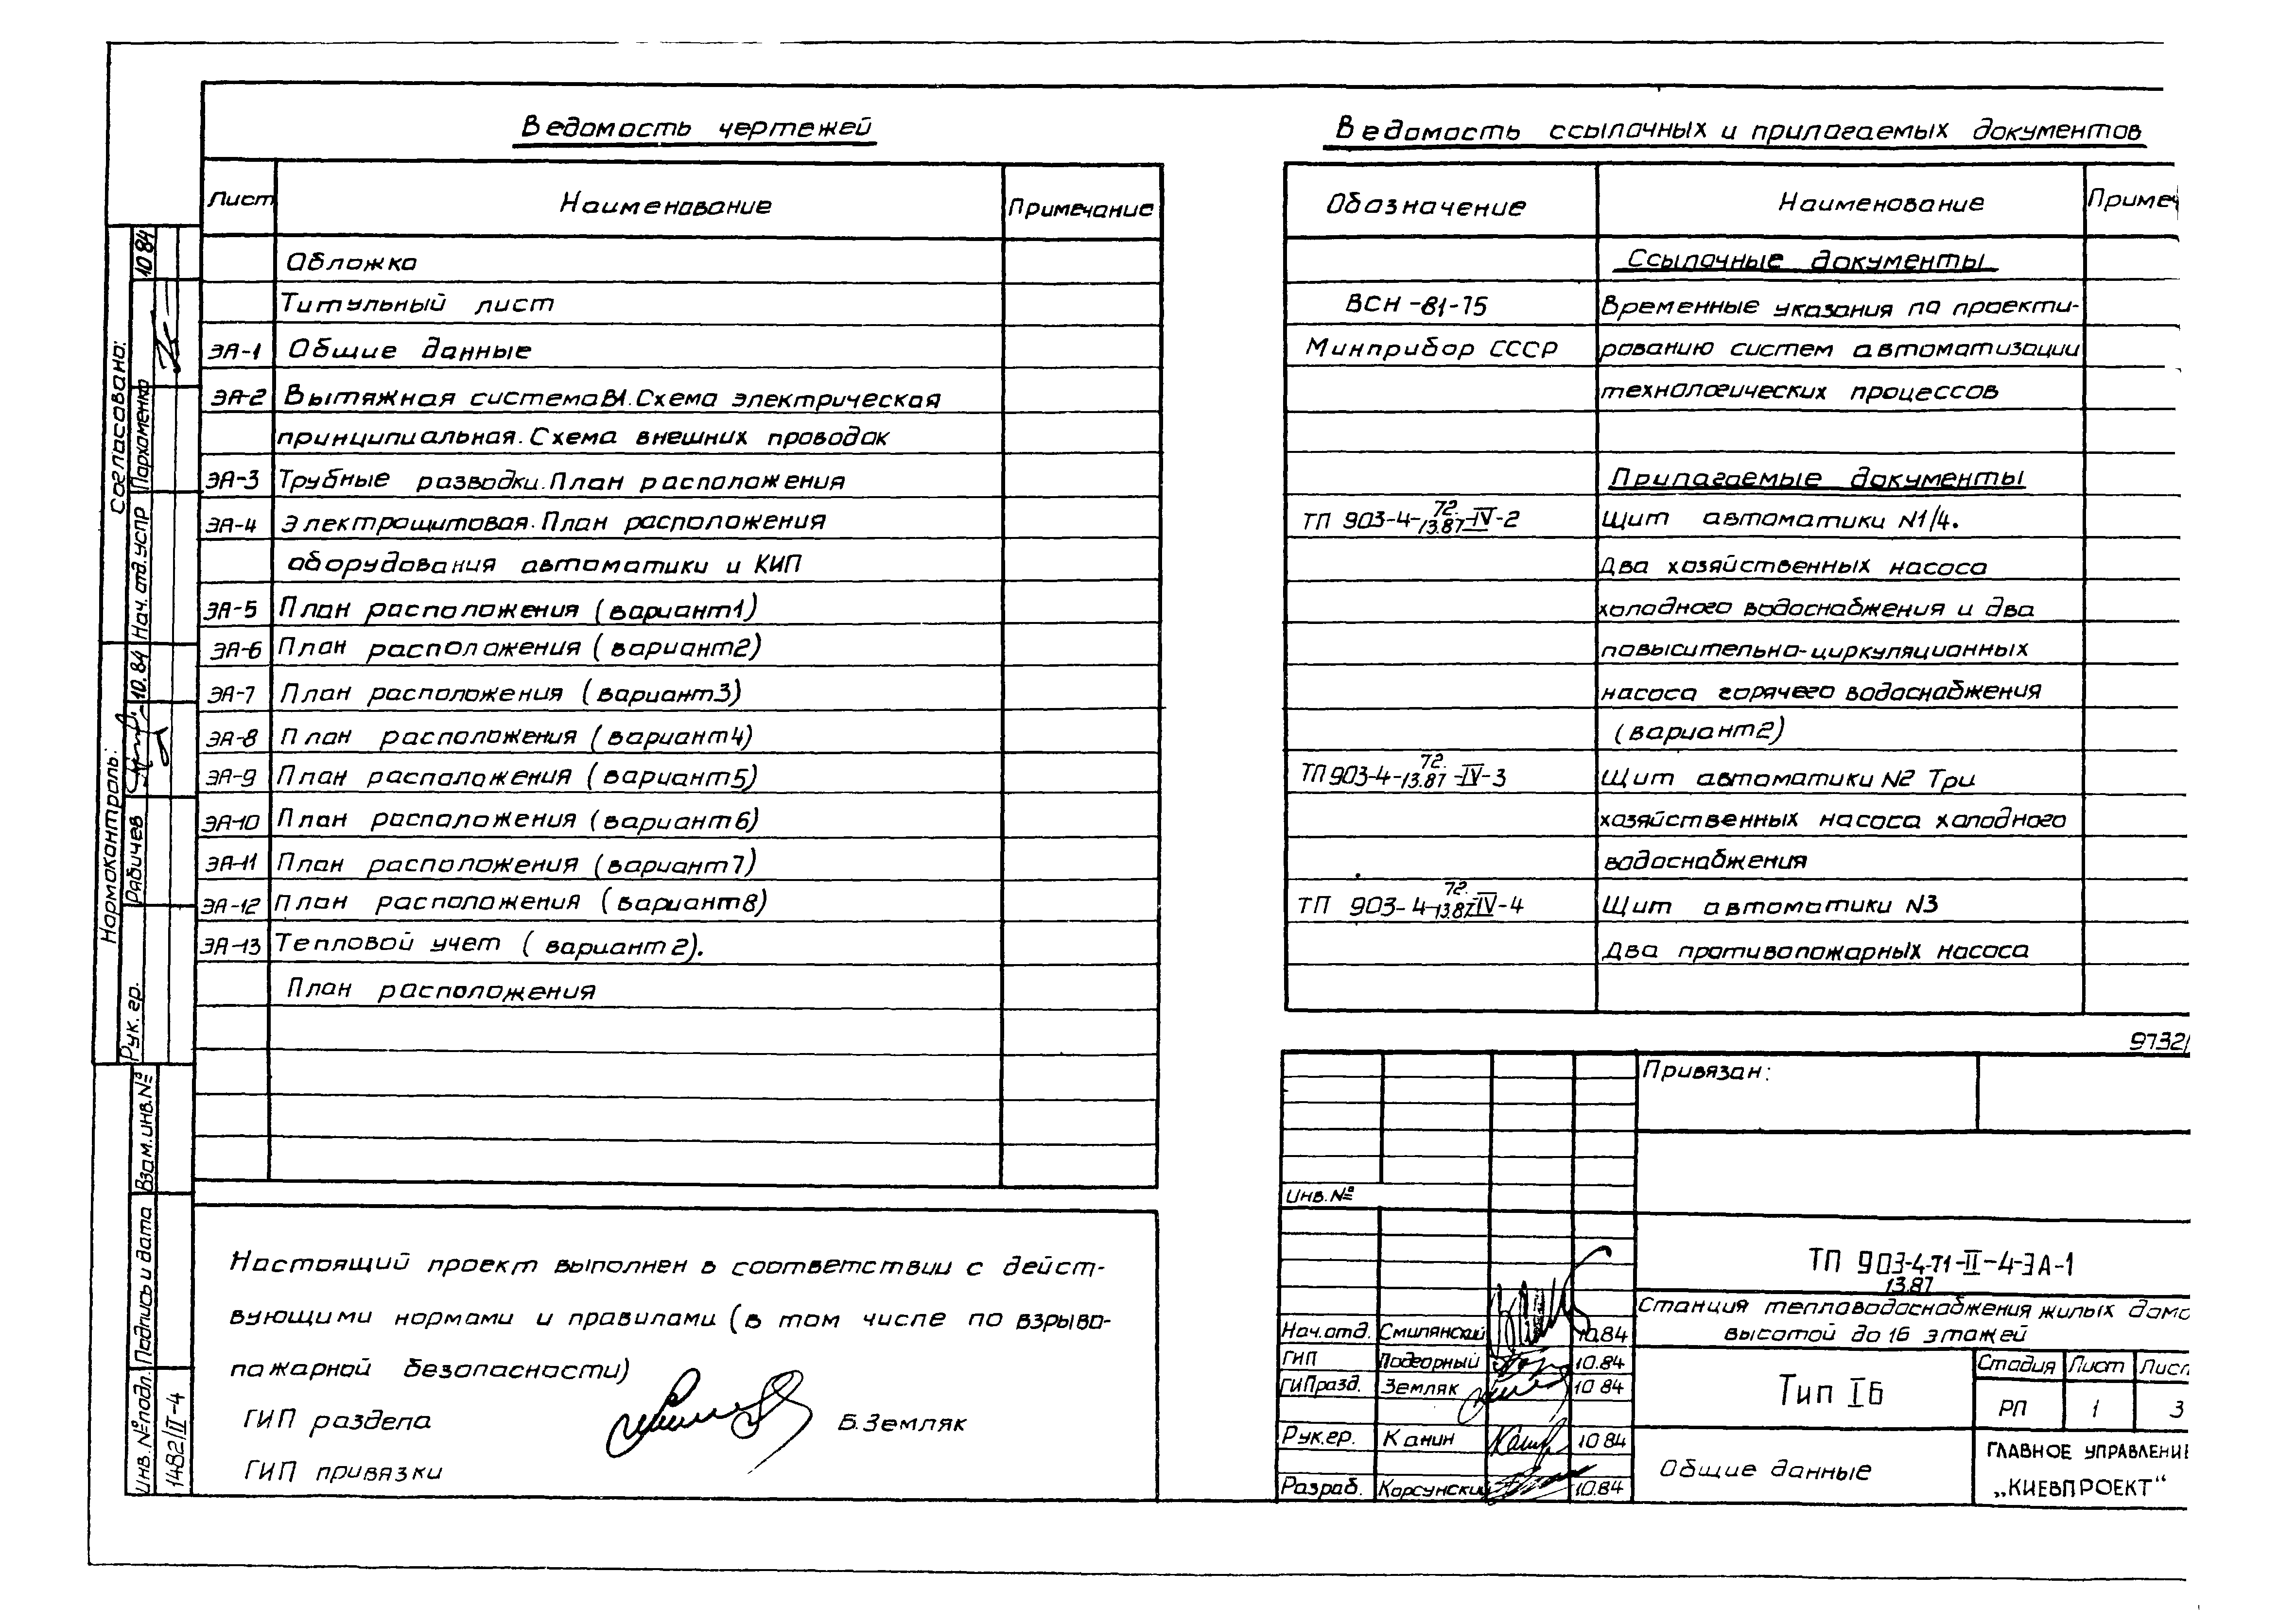 Ведомость чертежей
Лист Наименование Примечание
Обложка
Титульный лист
ЭА-1 Общие данные
ЭА-2 Вытяжная система В1. Схема электрическая
принципиальная. Схема внешних проводок
ЭА-3 Трубные разводки. План расположения
ЭА-4 Электрощитовая. План расположения
оборудования автоматики и КИП
ЭА-5 План расположения (вариант 1)
ЭА-6 План расположения (вариант 2)
ЭА-7 План расположения (вариант 3)
ЭА-8 План расположения (вариант 4)
ЭА-9 План расположения (вариант 5)
ЭА-10 План расположения (вариант 6)
ЭА-11 План расположения (вариант 7)
ЭА-12 План расположения (вариант 8)
ЭА-13 Тепловой учет (вариант 2).
План расположения
Настоящий проект выполнен в соответствии с дейст-
вующими нормами и правилами (в том числе по взрыво-
пожарной безопасности)
ГИП раздела Б. Земляк
ГИП привязки
Ведомость ссылочных и прилагаемых документов
Обозначение Наименование Примеч
Ссылочные документы
ВСН-81-75 Временные указания по проекти-
Минприбор СССР рованию систем автоматизации
технологических процессов
Прилагаемые документы
ТП 903-4-72.13.87-IV-2 Щит автоматики N1/4.
Два хозяйственных насоса
холодного водоснабжения и два
повысительно-циркуляционных
насоса горячего водоснабжения
(вариант 2)
ТП 903-4-72.13.87-IV-3 Щит автоматики N2 Три
хозяйственных насоса холодного
водоснабжения
ТП 903-4-72.13.87-IV-4 Щит автоматики N3
Два противопожарных насоса
9732/
Привязан:
Инв. №
ТП 903-4-71-II-4-ЭА-1
13.87
Станция тепловодоснабжения жилых домо
высотой до 16 этажей
Нач. отд. Смилянский 10.84
ГИП Подгорный 10.84
ГИП разд. Земляк 10 84
Рук. гр. Канин 10 84
Разраб. Корсунский 10.84
Тип IБ
Стадия Лист Лист
РП 1 3
Общие данные
ГЛАВНОЕ УПРАВЛЕНИЕ
„КИЕВПРОЕКТ“
Согласовано:
Нач. отд. УСПР Пархоменко 10 84
Нормоконтроль:
Рук. гр. Рябичев 10. 84
Взам. инв. №
Подпись и дата
Инв. № подл.
1482/II-4